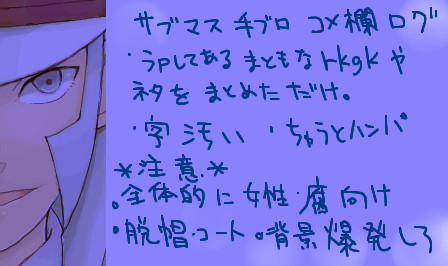 サブマス 手ブロ コメ欄ログ
・うpしてある まともなrkgkや
ネタを まとめただけ。
・字汚い ・ちゅうとハンパ
*注意*
。全体的に女性・腐向け
・脱帽・コート 。背景爆発しろ